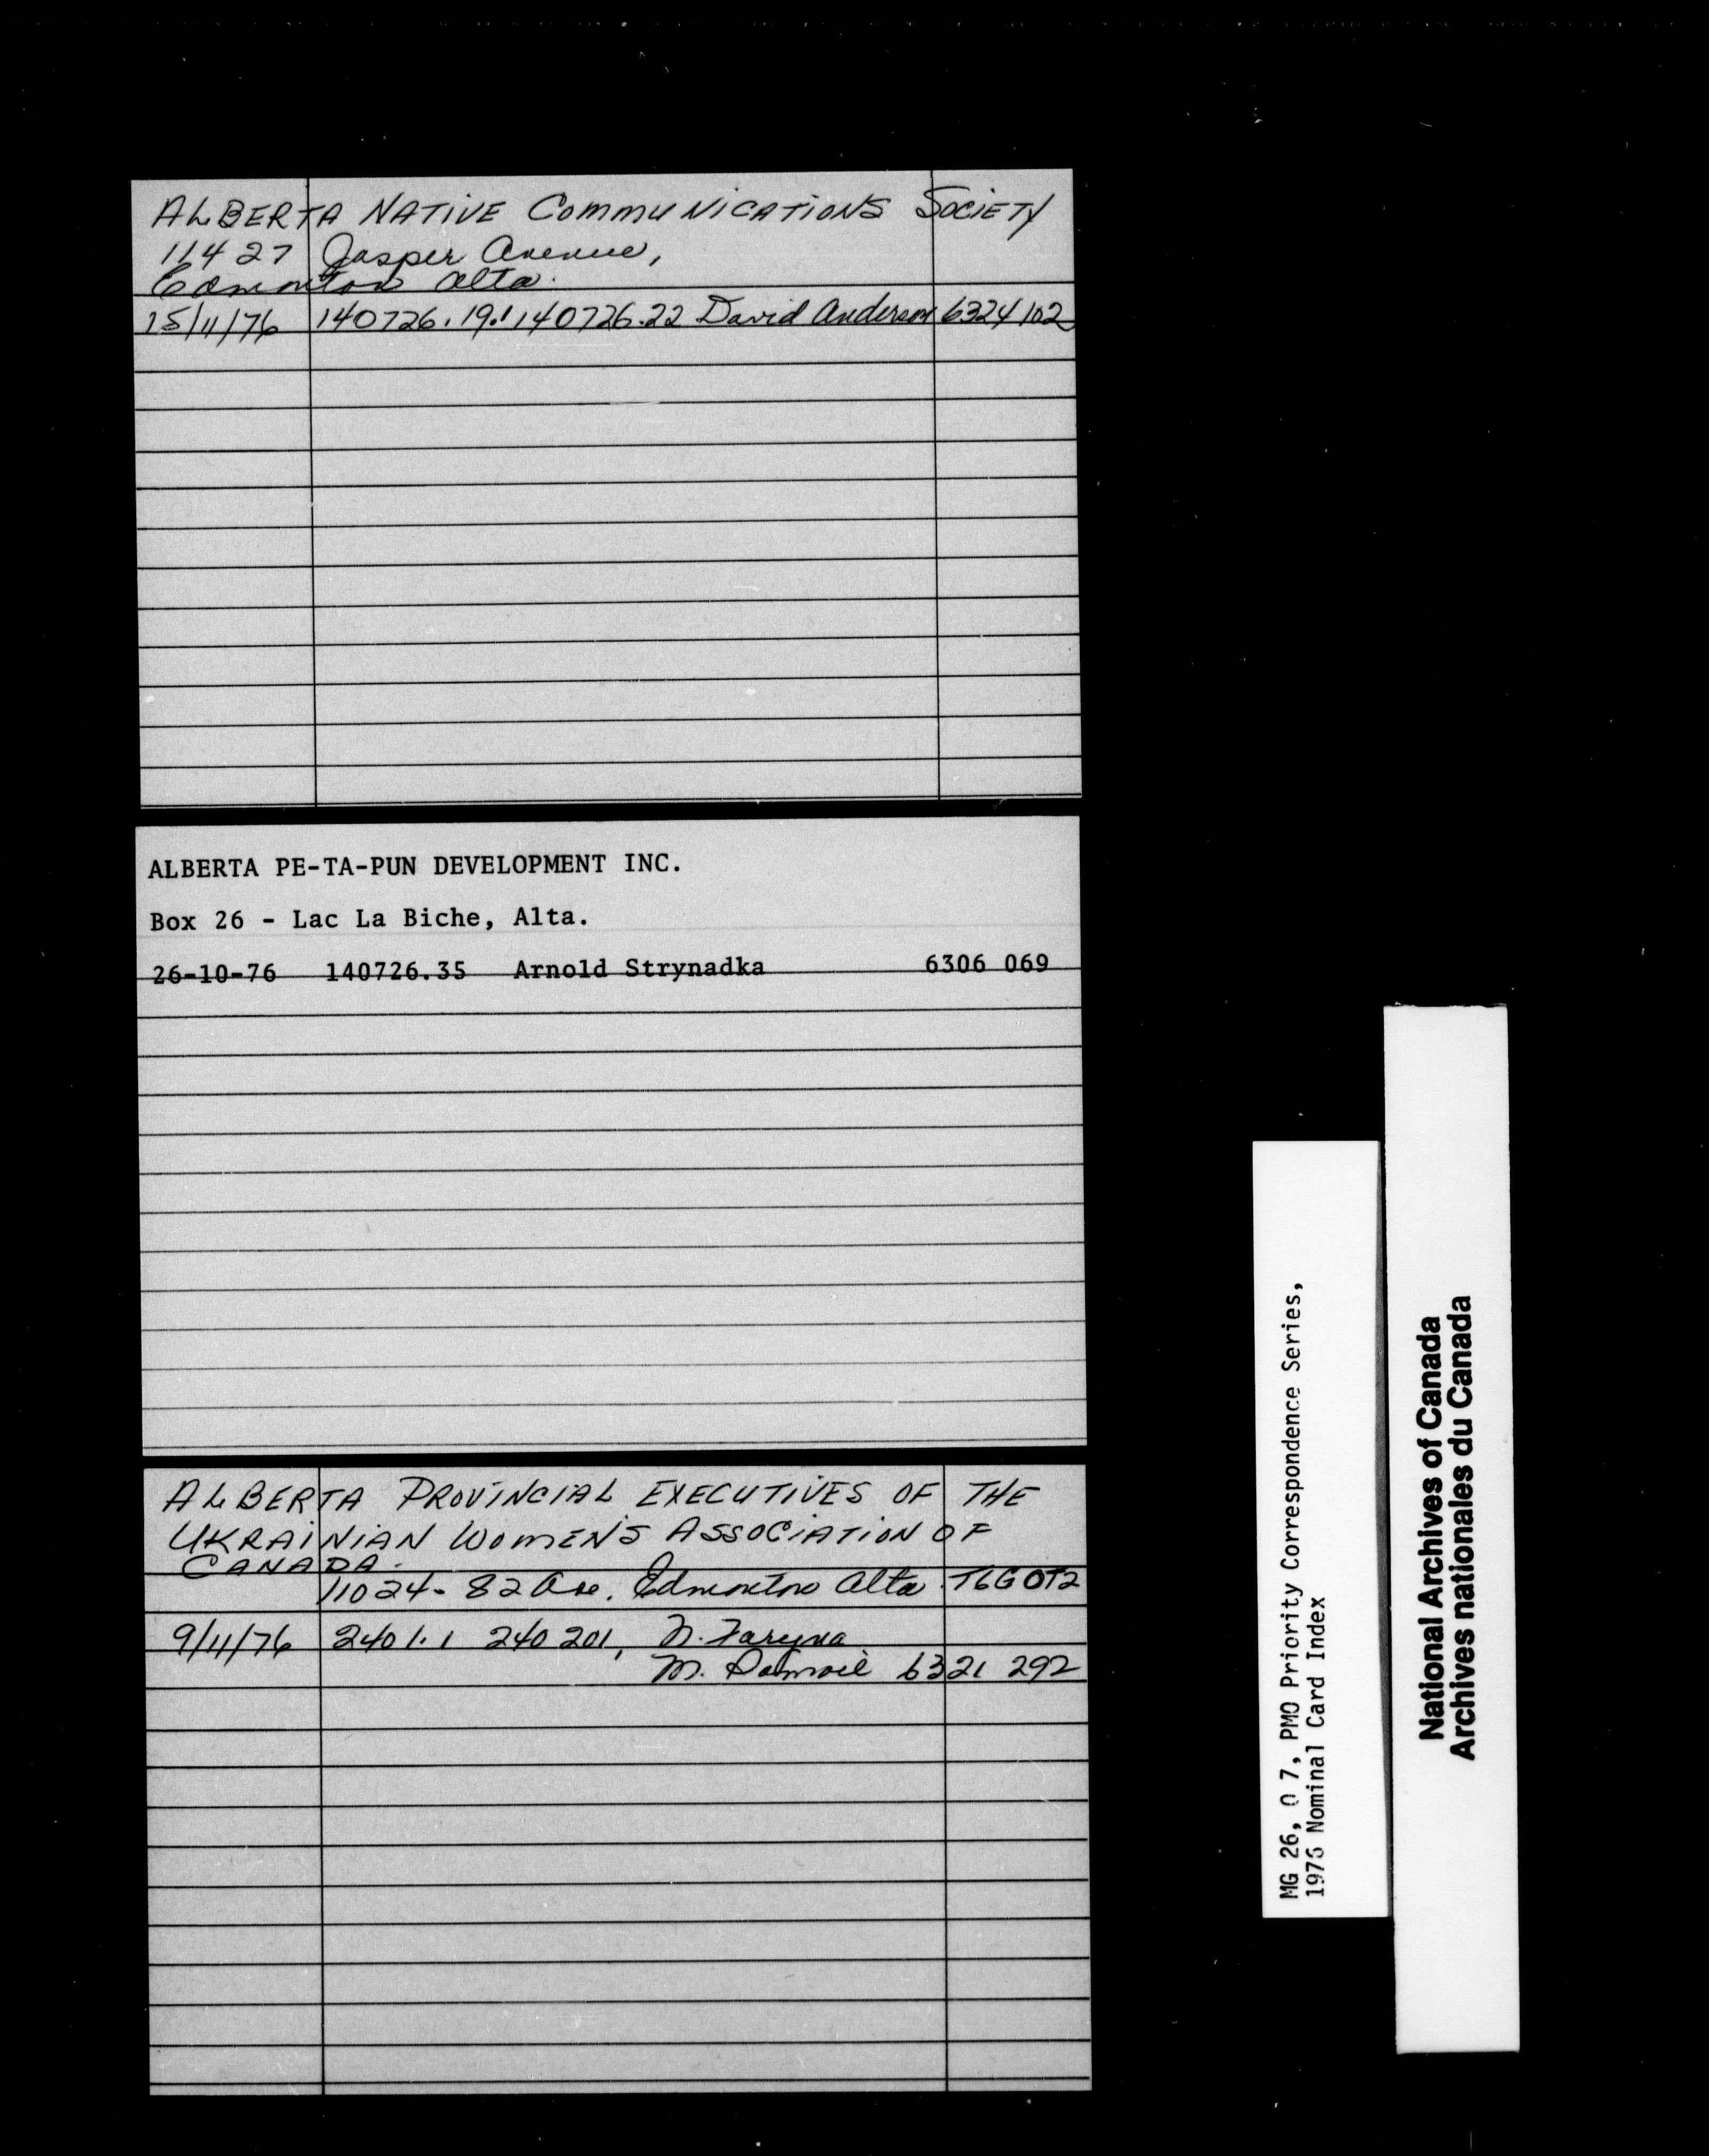 ALBERTA NATIVE COMMUNICATIONS SOCIETY
11427 Jasper Avenue,
Edmonton Alta.
15/11/76 140726.19.1 140726.22 David Anderson 6324 102
ALBERTA PE-TA-PUN DEVELOPMENT INC.
Box 26 - Lac La Biche, Alta.
26-10-76 140726.35 Arnold Strynadka 6306 069
ALBERTA PROVINCIAL EXECUTIVES OF THE
UKRAINIAN WOMEN'S ASSOCIATION OF
CANADA.
11024 - 82 Ave. Edmonton Alta. T6G 0T2
9/11/76 2401.1 240 201, N. Faryna
M. 6321 292
MG 26, O 7, PMO Priority Correspondence Series,
1976 Nominal Card Index
National Archives of Canada
Archives nationales du Canada